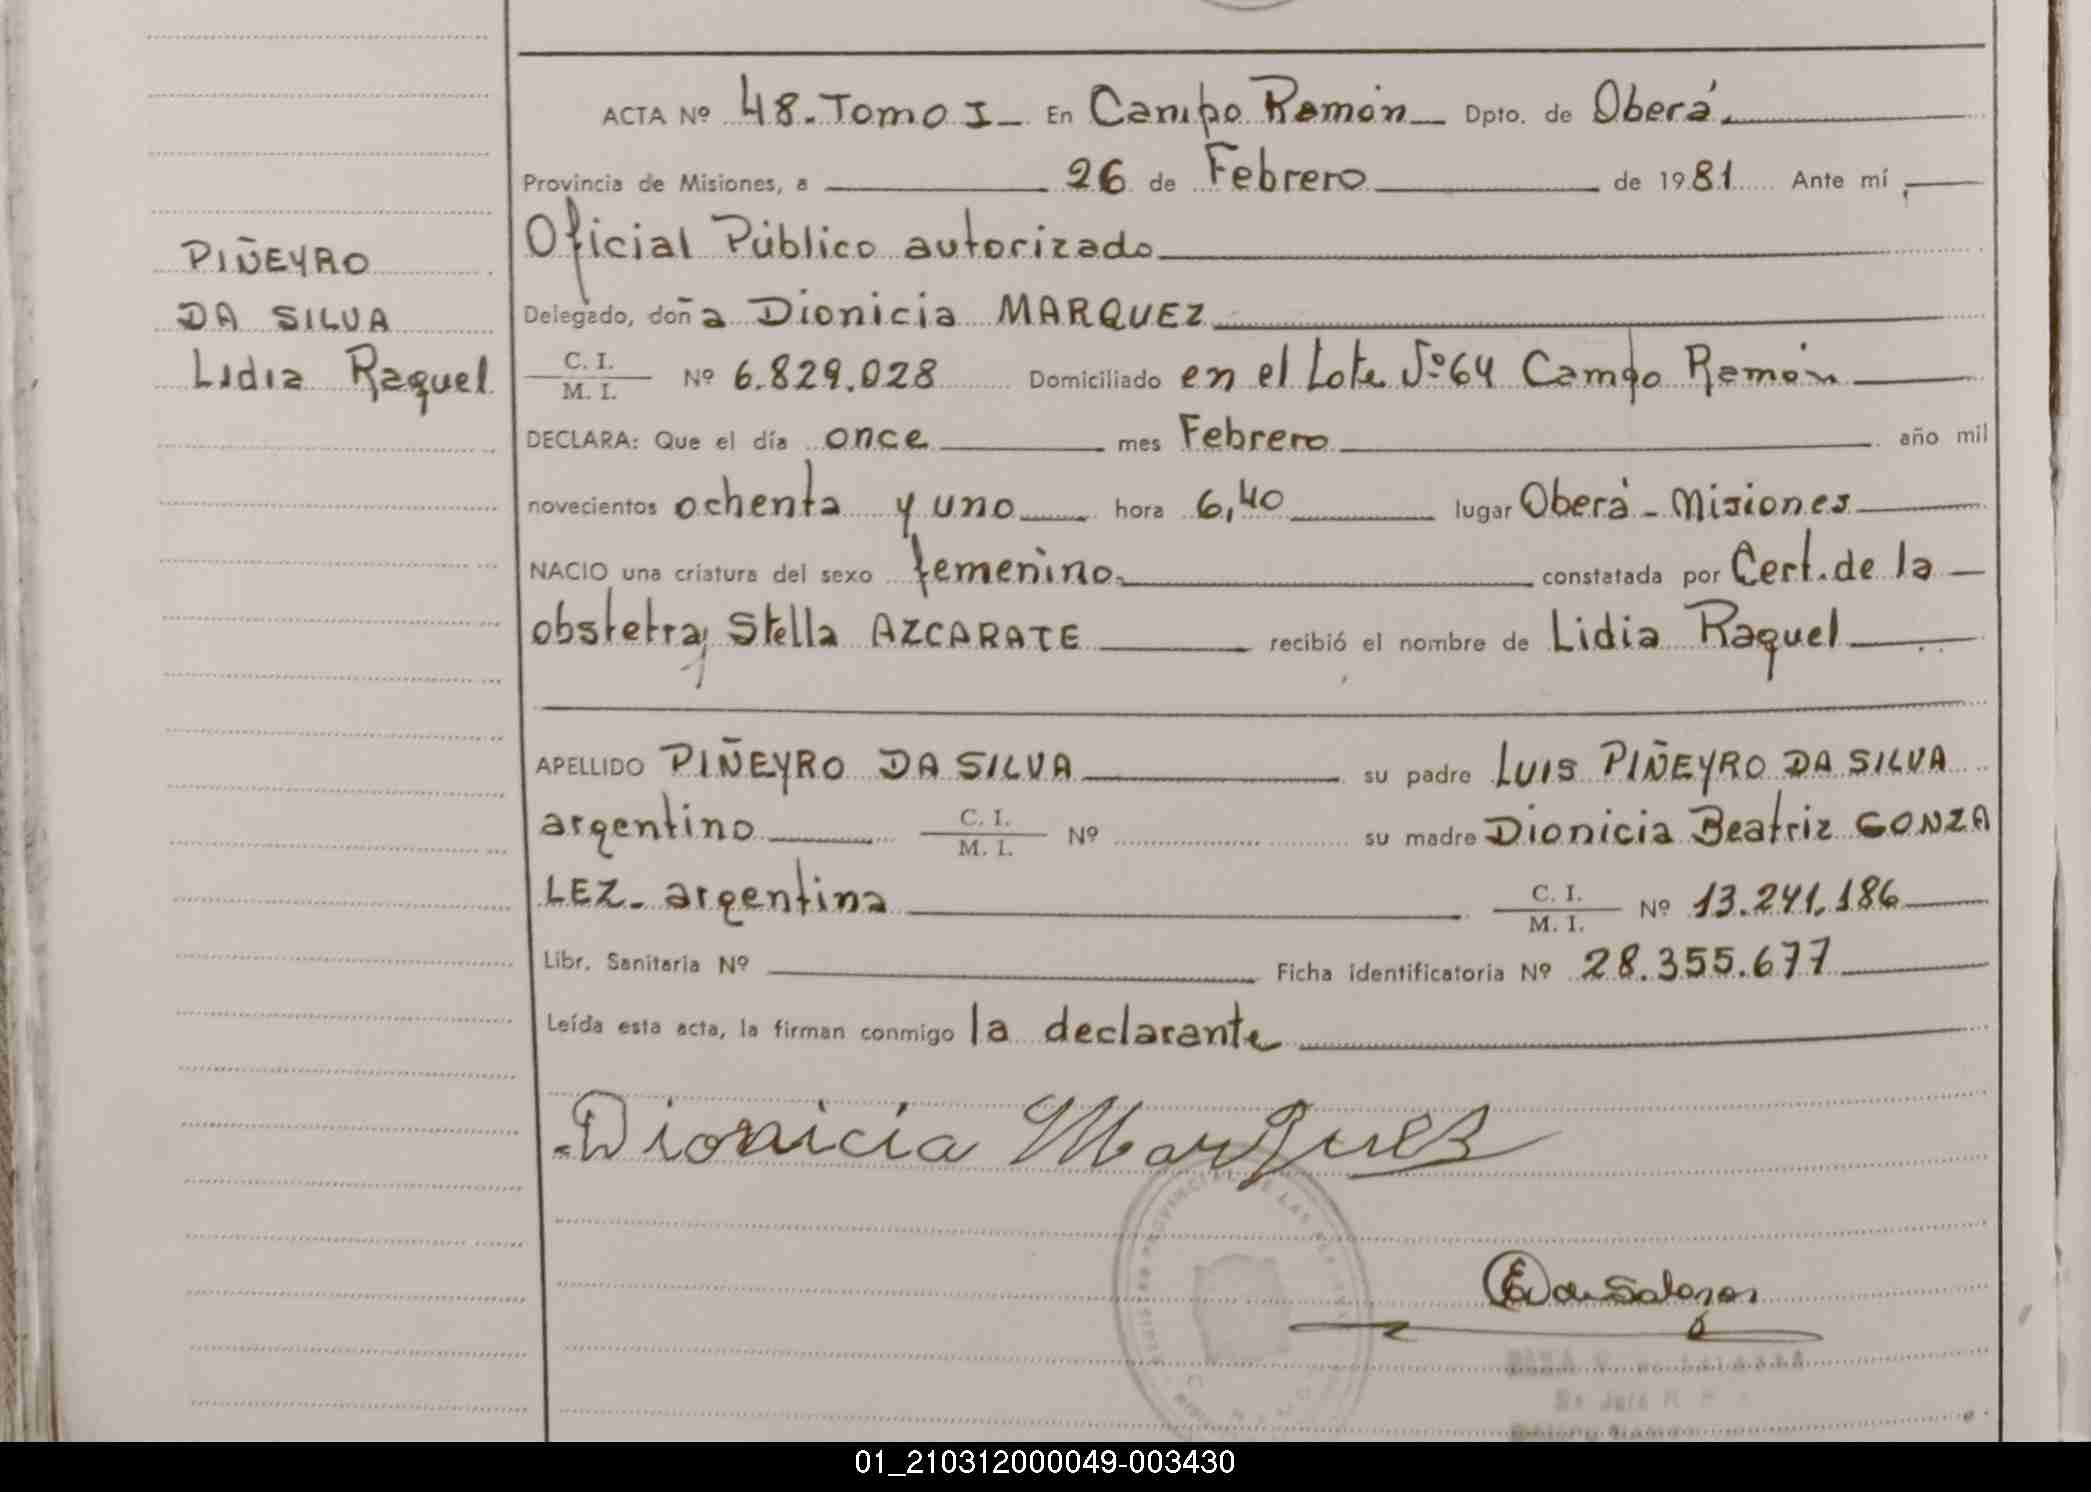 ACTA Nº 48. Tomo I En Campo Ramón Dpto. de Oberá
Provincia de Misiones, a 26 de Febrero de 1981 Ante mí,
Oficial Público autorizado
Delegado, doña Dionicia MARQUEZ
C. I.
M. I. Nº 6.829.028 Domiciliado en el Lote Nº 64 Campo Ramón
DECLARA: Que el día once mes Febrero año mil
novecientos ochenta y uno hora 6,40 lugar Oberá - Misiones
NACIO una criatura del sexo femenino constatada por Cert. de la
obstetra, Stella AZCARATE recibió el nombre de Lidia Raquel
APELLIDO PIÑEYRO DA SILVA su padre LUIS PIÑEYRO DA SILVA
argentino C. I.
M. I. Nº su madre Dionicia Beatriz GONZA
LEZ - argentina C. I.
M. I. Nº 13.241.186
Libr. Sanitaria Nº Ficha identificatoria Nº 28.355.677
Leída esta acta, la firman conmigo la declarante
Dionicia Marquez
PIÑEYRO
DA SILVA
Lidia Raquel
01_210312000049-003430